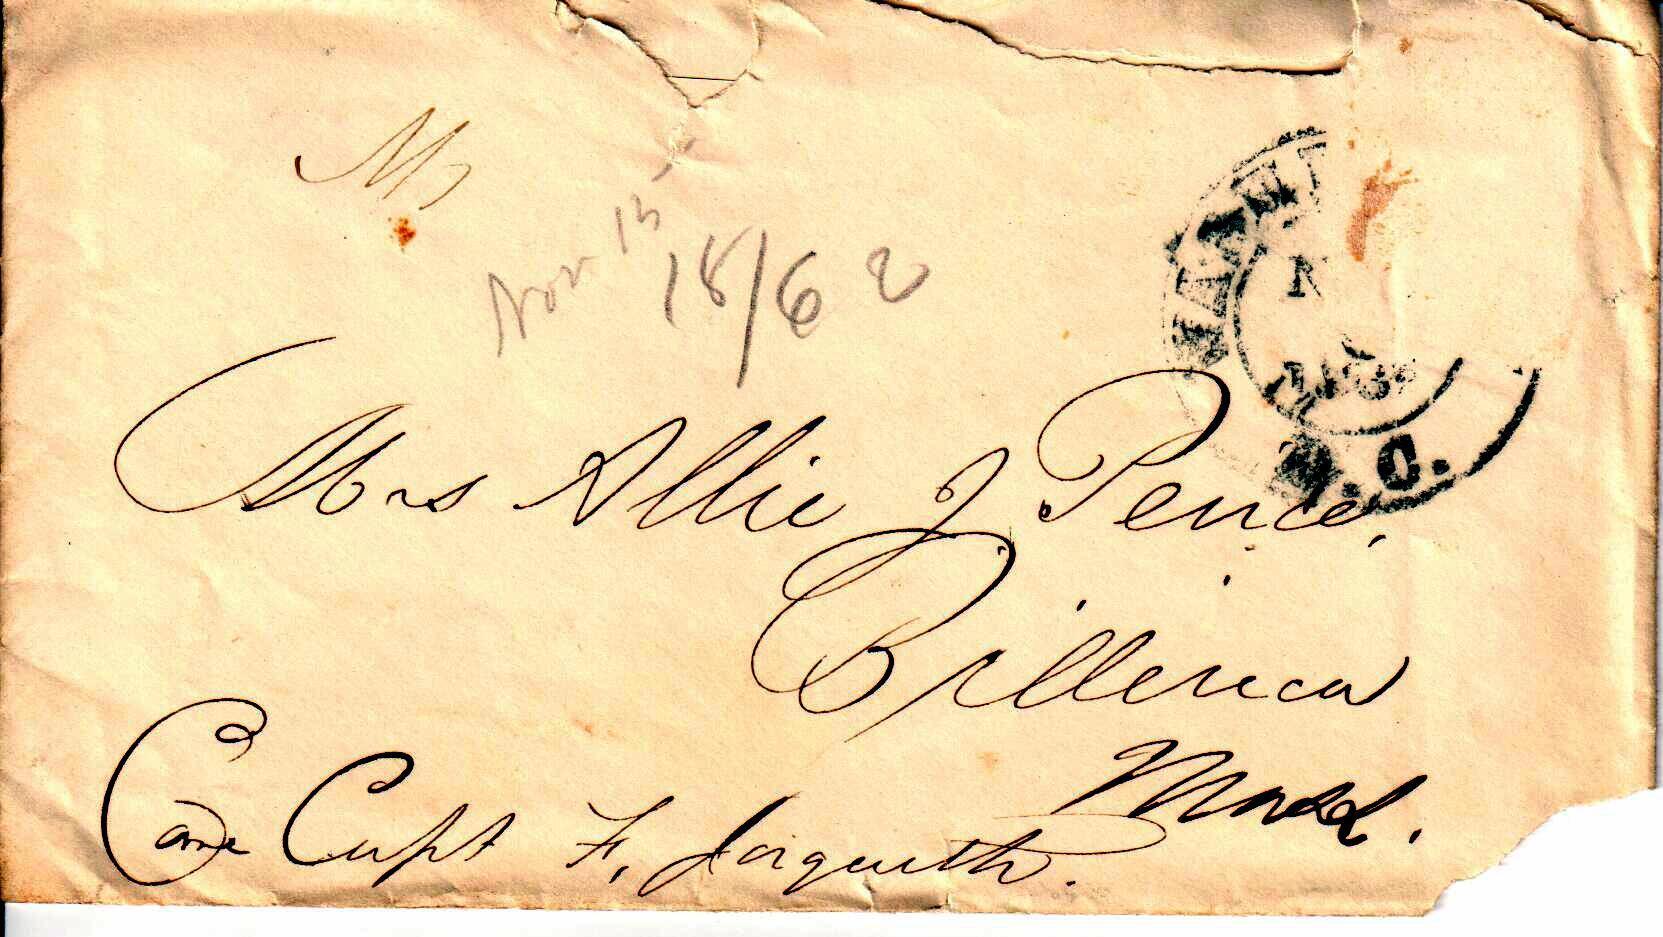 Mr
Nov 15
18/62
N
1862
D.C.
Mrs Allie J. Pence,
Billerica
Mass.
Care Capt F. Jaquith.